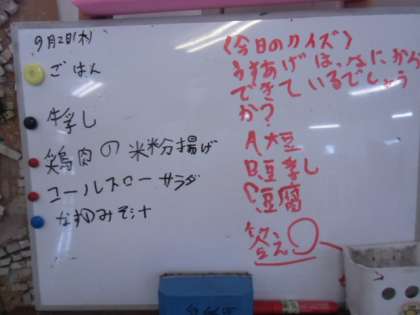 9月2日(木)
ごはん
牛乳
鶏肉の米粉揚げ
コールスローサラダ
なめこみそ汁
(今日のクイズ)
うすあげは、なにから
できているでしょう
か?
A大豆
B豆乳
C豆腐
答え